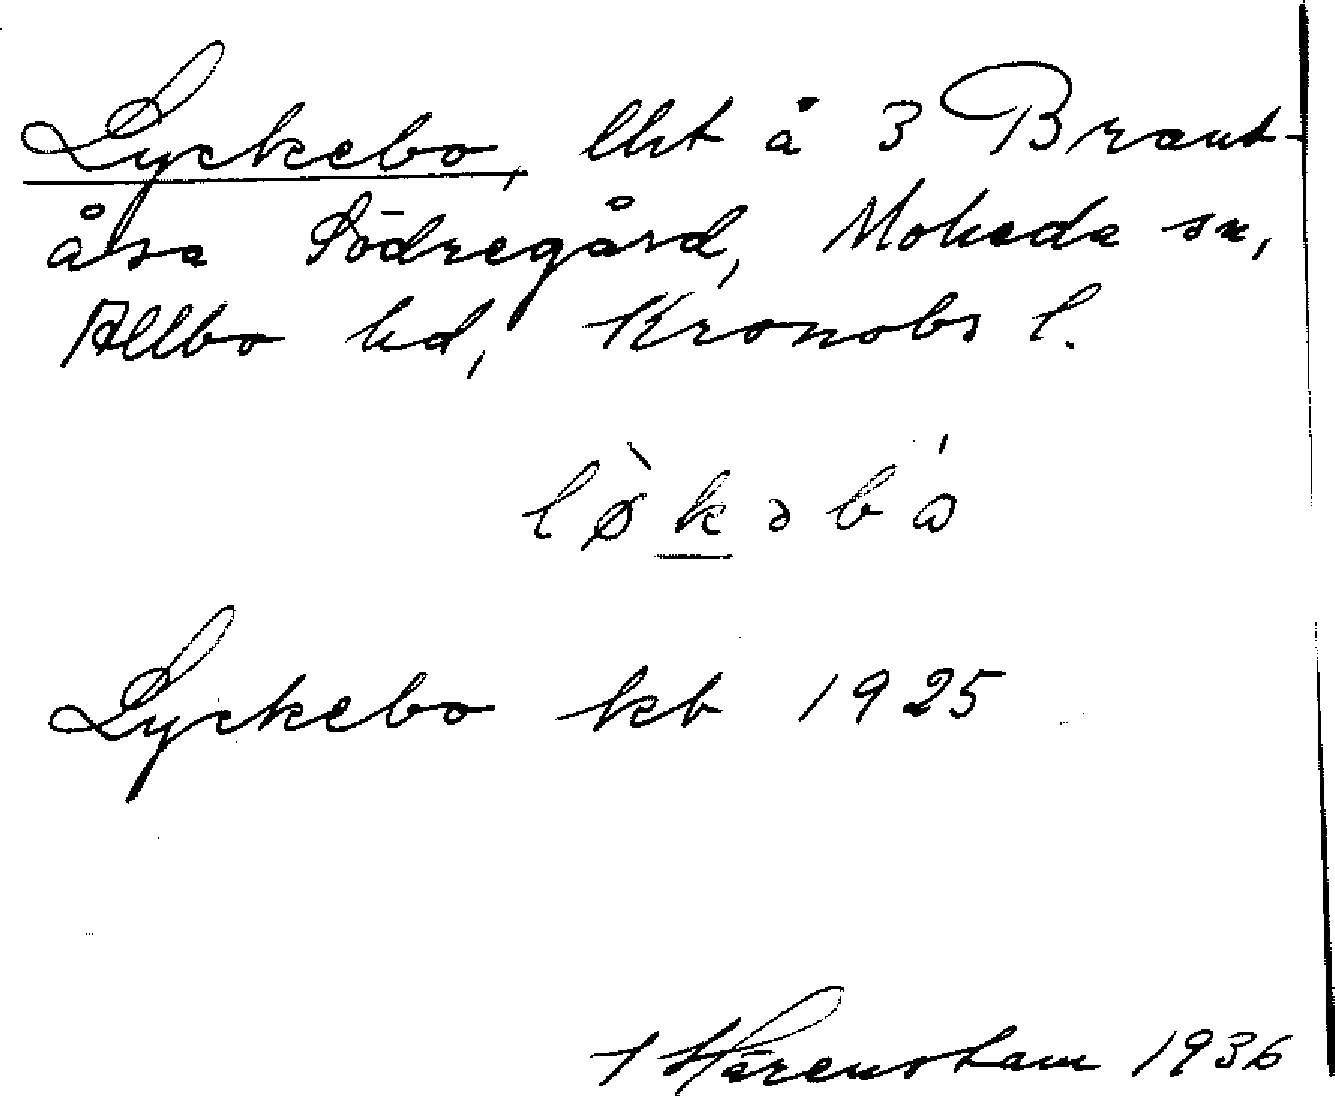 Lyckebo, lht å 3 Brant-
åsa Södregård, Moheda sn,
Allbo hd, Kronobs l.
lø̀kəbó
Lyckebo kb 1925
1936